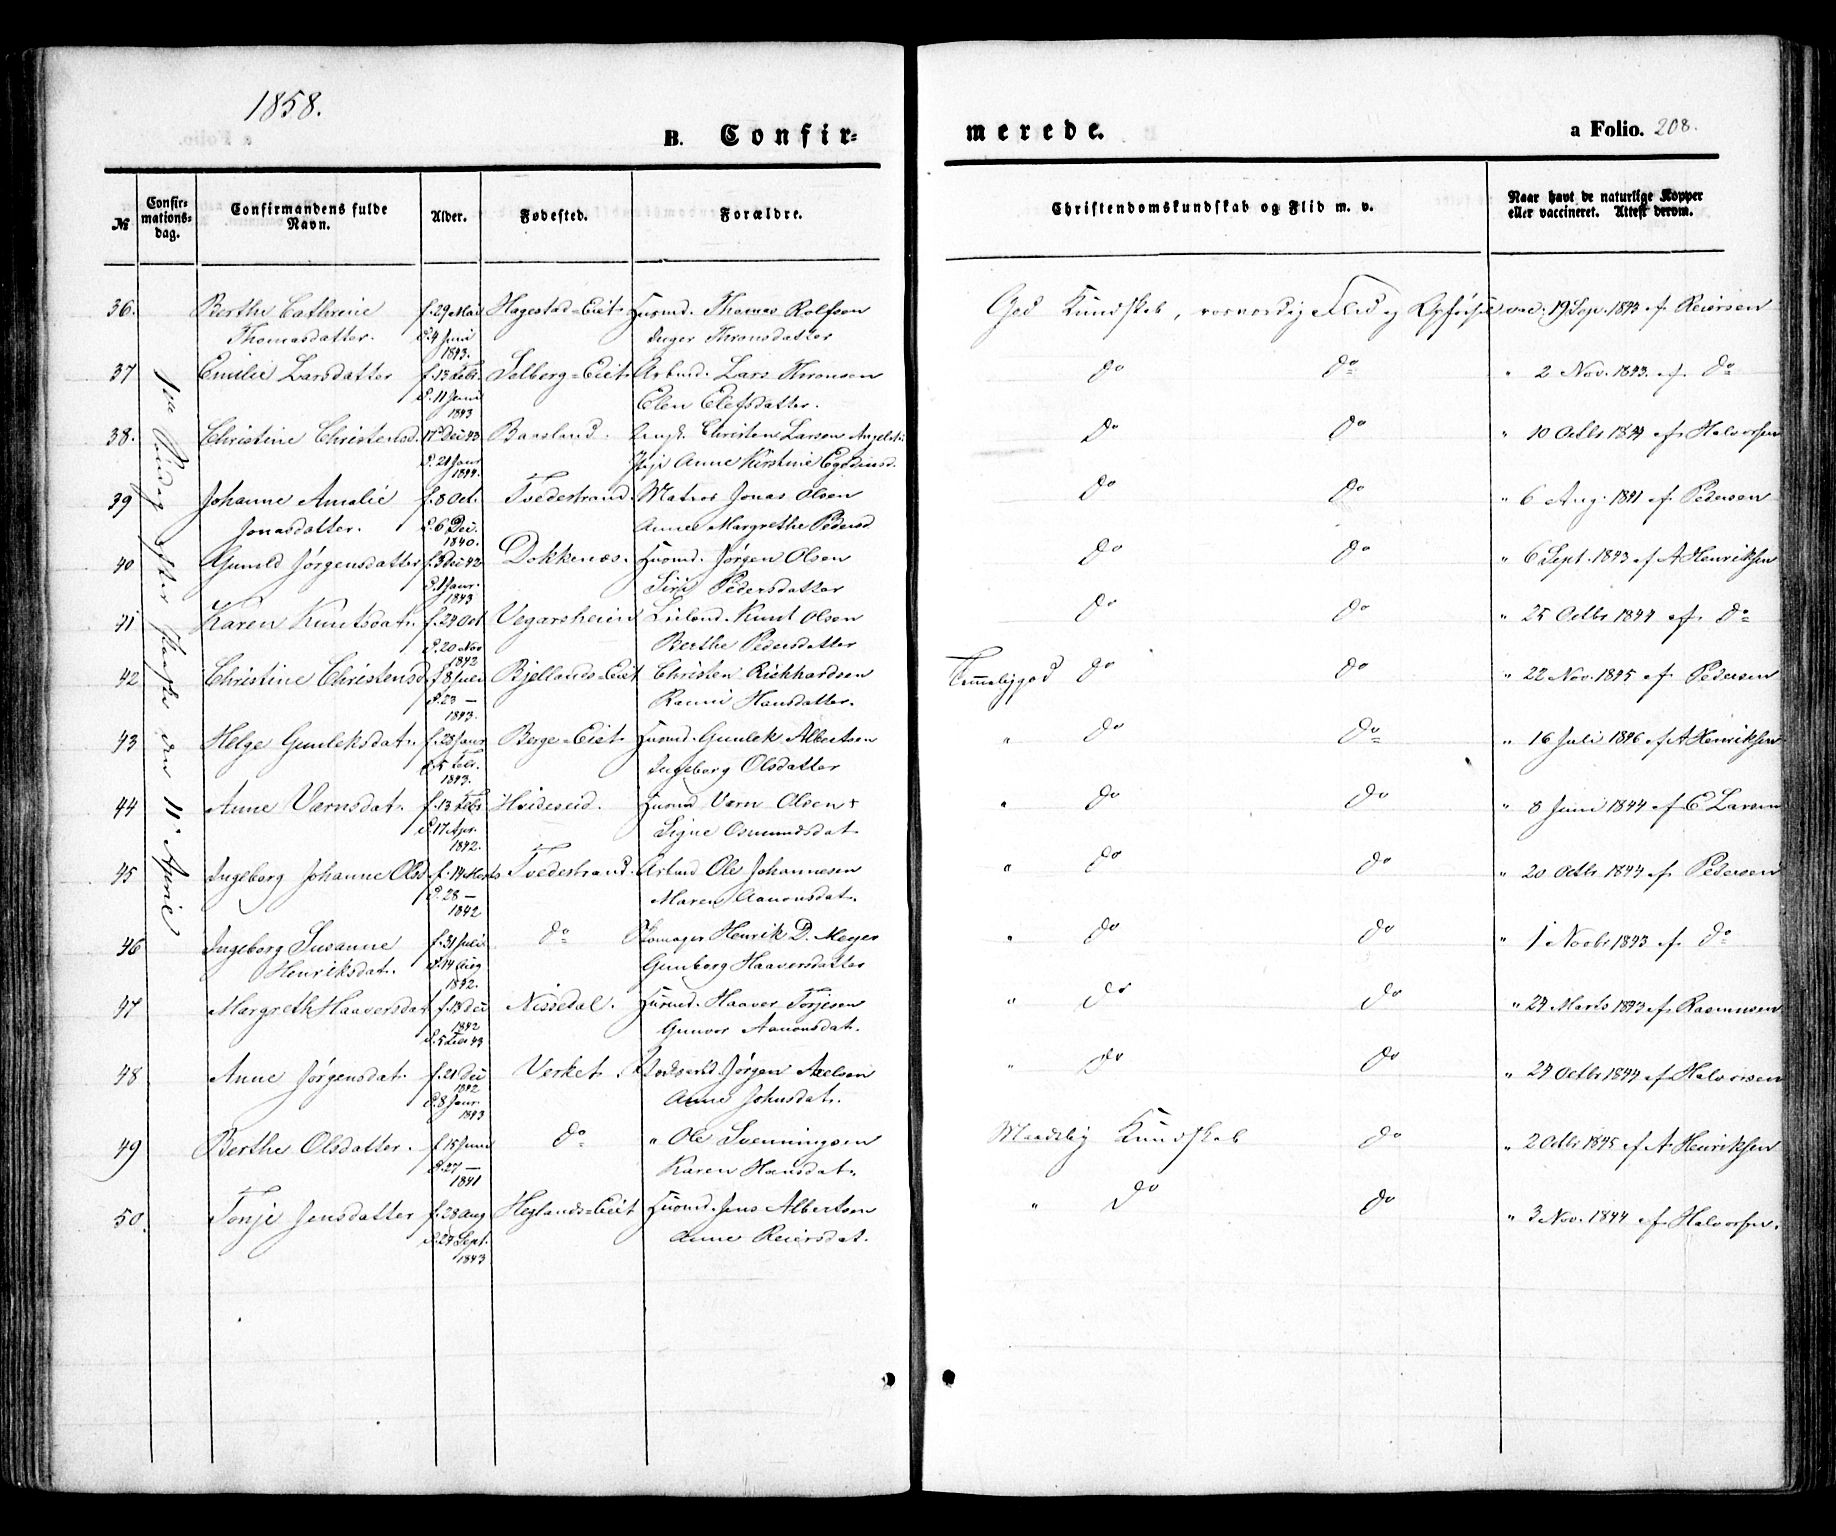 1858.
B. Confir-
merede.
a Folio. 208.
№
Confir-
mations-
dag.
Confirmandens fulde
Navn.
Alder.
Fødested.
Forældre.
Christendomskundskab og Flid m. v.
Naar havt de naturlige Kopper
eller vaccineret. Attest derom.
1ste Søndag efter Paaske den 11 April
36. Berthe Cathrine f. 29 Mai Hagestad-Eiet Huusmd. Thomas Rolfsen God Kundskab, Flid og Opførsel vac. 19 Sep. 1843 af Reiersen
Thomasdatter. d. 4 Juni Inger Thronsdatter
1843.
37 Emilie Larsdatter f. 13 Febr. Solberg-Eiet Arbmd. Lars Thronsen do do " 2 Nov. 1843. af do
d. 11 Juni Elen Elefsdatter.
1843
38. Christine Christensd. 17 Dec 43 Baasland. Christen Larsen do do " 10 Octbr 1844 af Halvorsen
d. 21 Janr Pige Anne Kirstine
1844.
39 Johanne Amalie f. 8 Oct. Tvedestrand. Matros Jonas Olsen do do " 6 Aug. 1841 af Pedersen
Jonasdatter. d. 6 Dec. Anne Margrethe Pedersd
1840.
40 Gunild Jørgensdatter f. 3 Dec 42 Dokkenæs. Huusmd. Jørgen Olsen do do " 6 Sept. 1843 af A Henriksen
d. 1 Janr. Siri Pedersdatter
1843
41 Karen Knutsdat. f. 24 Oct Vegarsheien Knut Olsen do do " 25 Octbr 1844 af do
d. 20 Nov Berthe Pedersdatter
1842
42 Christine Christensd f. 8 Juni Bjellands-Eiet Christen Rickhardsen Temmelig god do do " 22 Nov. 1845 af Pedersen
d. 23 — Hansdatter.
1843.
43 Helge Gunleksdat. f. 28 Janr Berge-Eiet Huusmd. Gunlek Albertsen " do do " 16 Juli 1846 af A Henriksen
d. 5 Febr. Ingeborg Olsdatter
1843.
44 Anne Værnsdat. f. 13 Febr Hvideseid. Huusmd Værn Olsen + " do do " 8 Juni 1844 af C Larsen
d. 17 Apr. Signe Osmundsdat
1842.
45 Ingeborg Johanne Olsd f. 14 Marts Tvedestrand. Arbmd Ole Johannesen " do do " 20 Octbr 1844 af Pedersen
d. 28 — Maren Aanonsdat.
1842
46 Ingeborg Susanne f. 31 Juli do Skomager Henrik D. Meyer " do do " 1 Novbr 1843 af do
Henriksdat. d. 14 Aug Gunborg Haaversdatter
1842.
47 Margreth Haaversdat f. 13 Dec Nissedal. Huusmd. Haaver Torjesen " do do " 24 Marts 1843 af Rasmusen
1842 Gunvor Aanonsdat.
d. 5 Febr 43
48 Anne Jørgensdat. f. 21 Dec Verket. Jørgen Axelsen " do do " 24 Octbr 1844 af Halvorsen
1842
d. 8 Janr. Anne Johnsdat.
1843
49 Berthe Olsdatter. f. 15 Juni do " Ole Svenningsen Maadelig Kundskab do " 2 Octbr 1845 af A Henriksen
d. 27 — Karen Hansdat.
1841
50. Tonje Jensdatter f. 28 Aug Heglands-Eiet Huusmd. Jens Albertsen " do do " 3 Nov. 1844 af Halvorsen.
d. 24 Sept. Anne Reiersdat.
1843